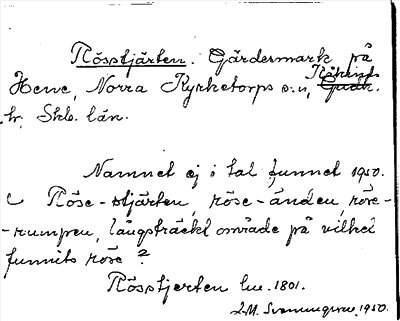 Rösstjärten. Gärdesmark på
Hene, Norra Kyrketorps s:n, Kåkinds
hr, Skb. län.
Namnet ej i tal funnet 1950.
Röse-stjärten, röse-änden, röse-
-rumpen, långsträckt område på vilket
funnits röse?
Rösstjerten lm. 1801.
1950.